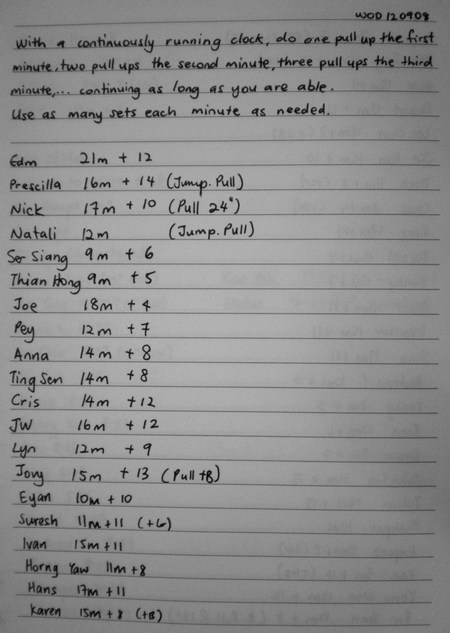 WOD 120908
With a continuously running clock, do one pull up the first
minute, two pull ups the second minute, three pull ups the third
minute,... continuing as long as you are able.
Use as many sets each minute as needed.
Edm 21m + 12
Prescilla 16m + 14 (Jump. Pull)
Nick 17m + 10 (Pull 24")
Natali 12m (Jump. Pull)
Ser Siang 9m + 6
Thian Hong 9m + 5
Joe 18m + 4
Pey 12m + 7
Anna 14m + 8
Ting Sen 14m + 8
Cris 14m + 12
JW 16m + 12
Lyn 12m + 9
Jovy 15m + 13 (Pull +B)
Eyan 10m + 10
Suresh 11m + 11 (+G)
Ivan 15m + 11
Horng Yaw 11m + 8
Hans 17m + 11
Karen 15m + 8 (+B)